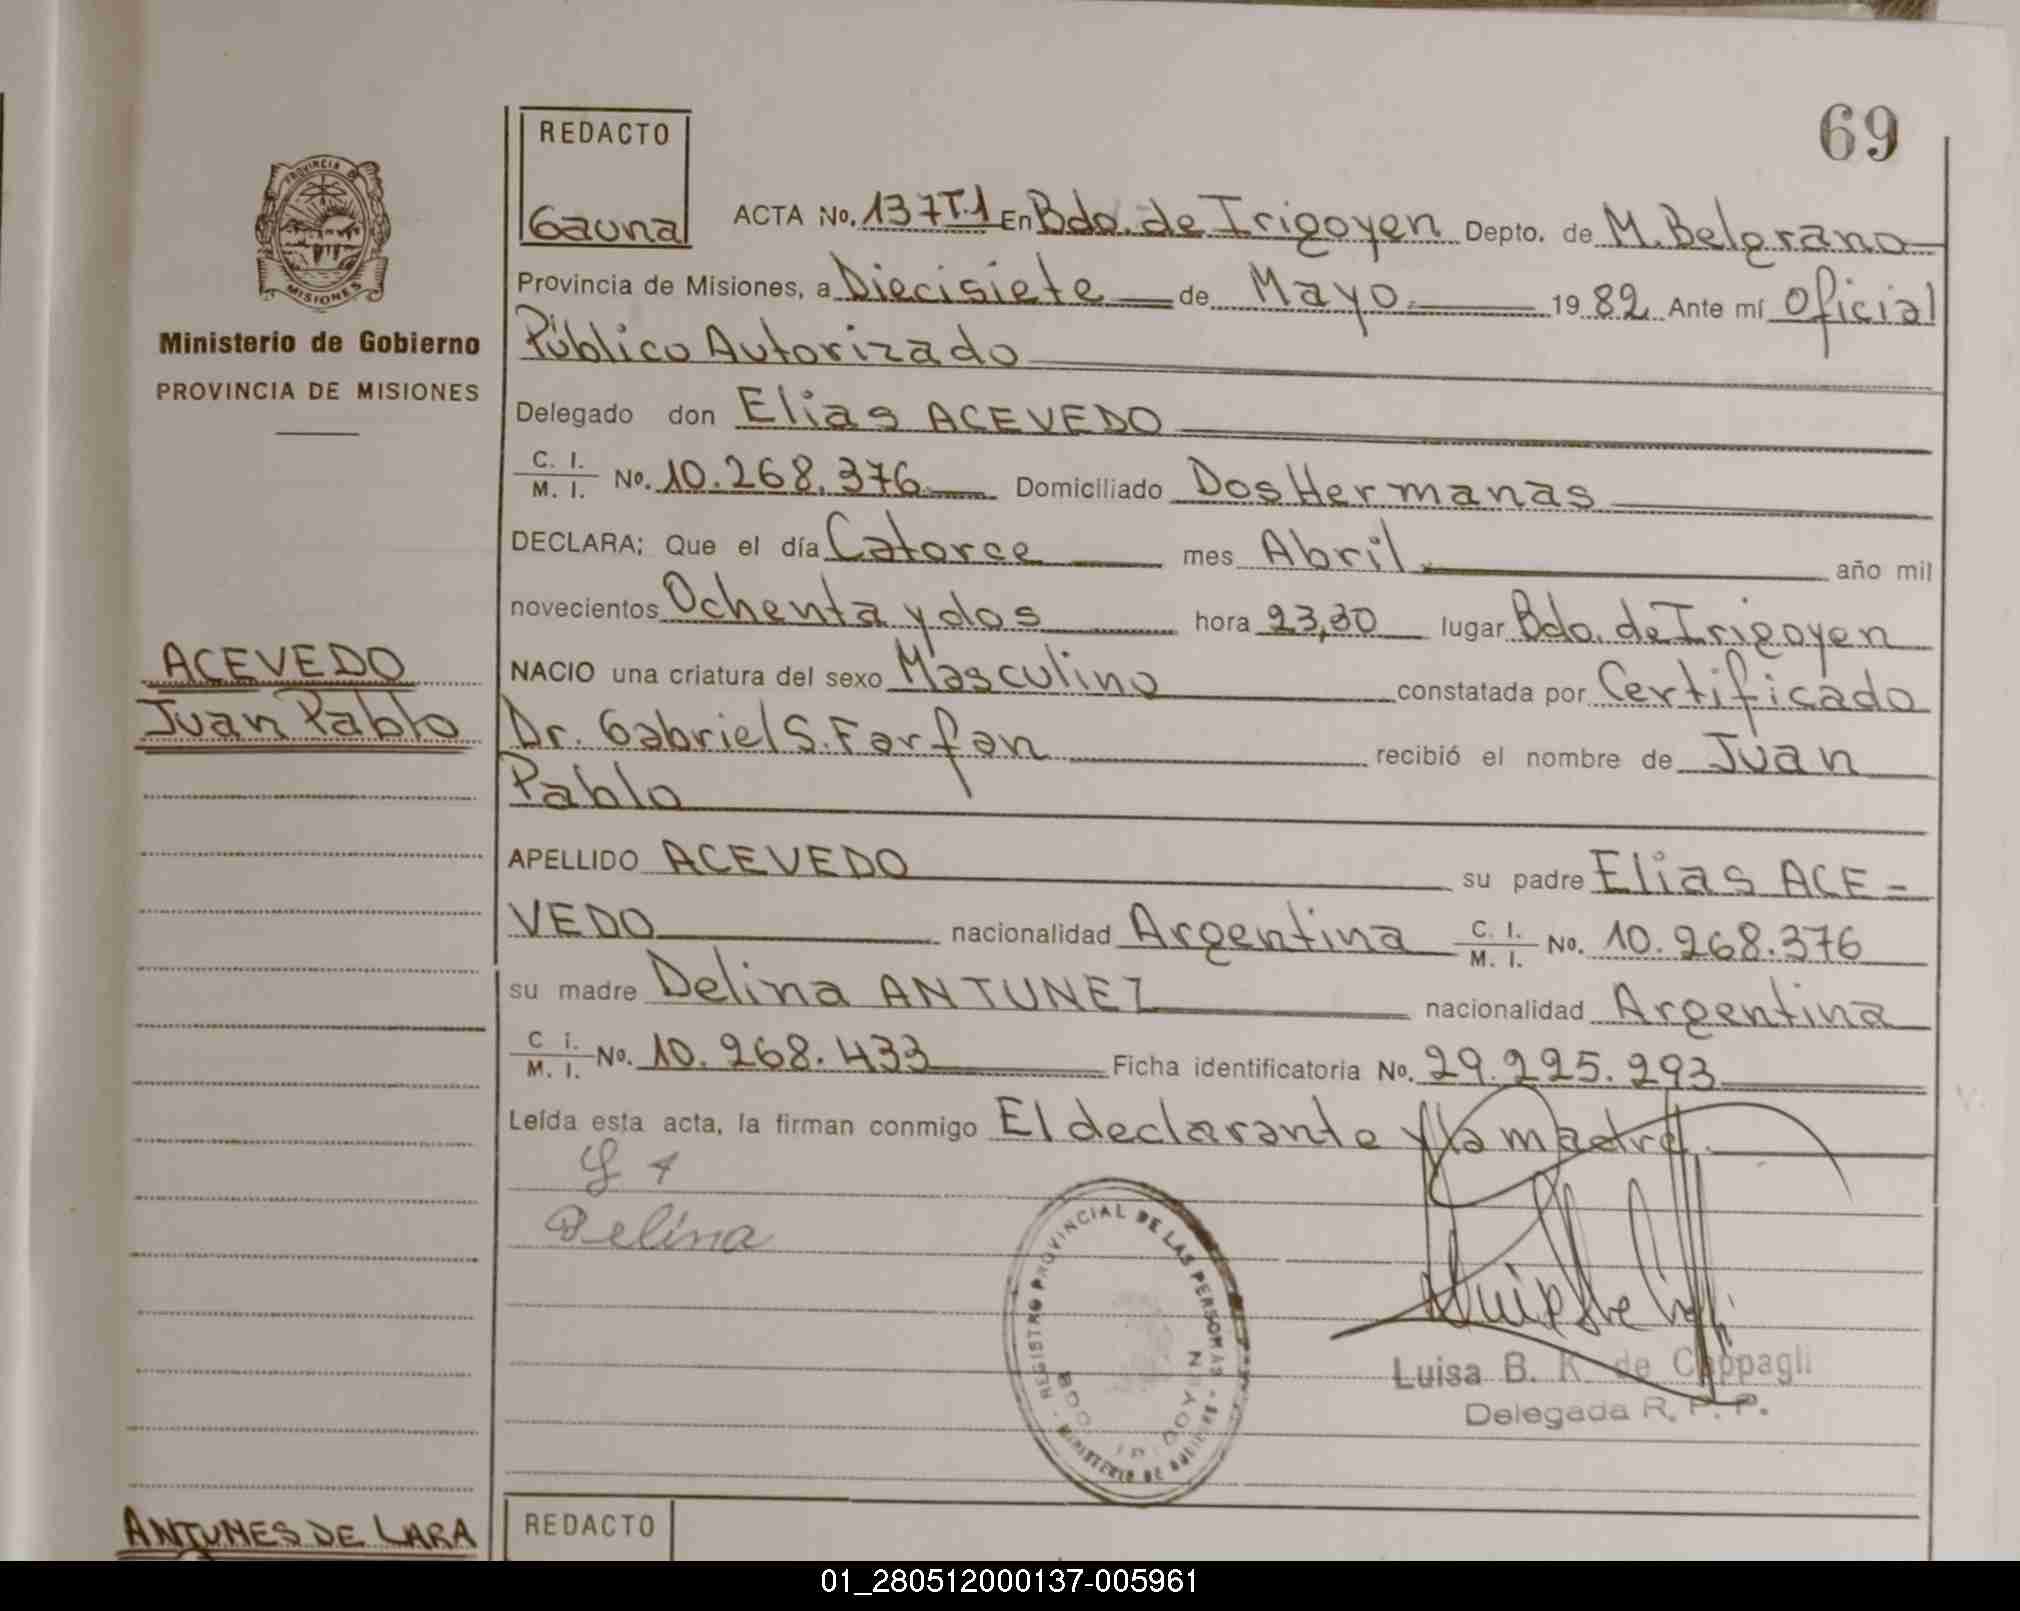 69
REDACTO
Gauna
PROVINCIA DE
MISIONES
Ministerio de Gobierno
PROVINCIA DE MISIONES
ACEVEDO
Juan Pablo
ACTA No. 137T.1 En Bdo. de Irigoyen Depto. de M. Belgrano
Provincia de Misiones, a Diecisiete de Mayo 1982 Ante mí Oficial
Público Autorizado
Delegado don Elias ACEVEDO
C. I. / M. I. No. 10.268.376 Domiciliado Dos Hermanas
DECLARA; Que el día Catorce mes Abril año mil
novecientos Ochenta y dos hora 23,30 lugar Bdo. de Irigoyen
NACIO una criatura del sexo Masculino constatada por Certificado
Dr. Gabriel S. Farfan recibió el nombre de Juan
Pablo
APELLIDO ACEVEDO su padre Elias ACE-
VEDO nacionalidad Argentina C. I. / M. I. No. 10.268.376
su madre Delina ANTUNEZ nacionalidad Argentina
C i. / M. I. No. 10.268.433 Ficha identificatoria No. 29.225.293
Leída esta acta, la firman conmigo El declarante y la madre.
Delina
REGISTRO PROVINCIAL DE LAS PERSONAS
MINISTERIO DE
Luisa B. R. de Cappagli
Delegada R. P. P.
ANTUNES DE LARA
REDACTO
01_280512000137-005961